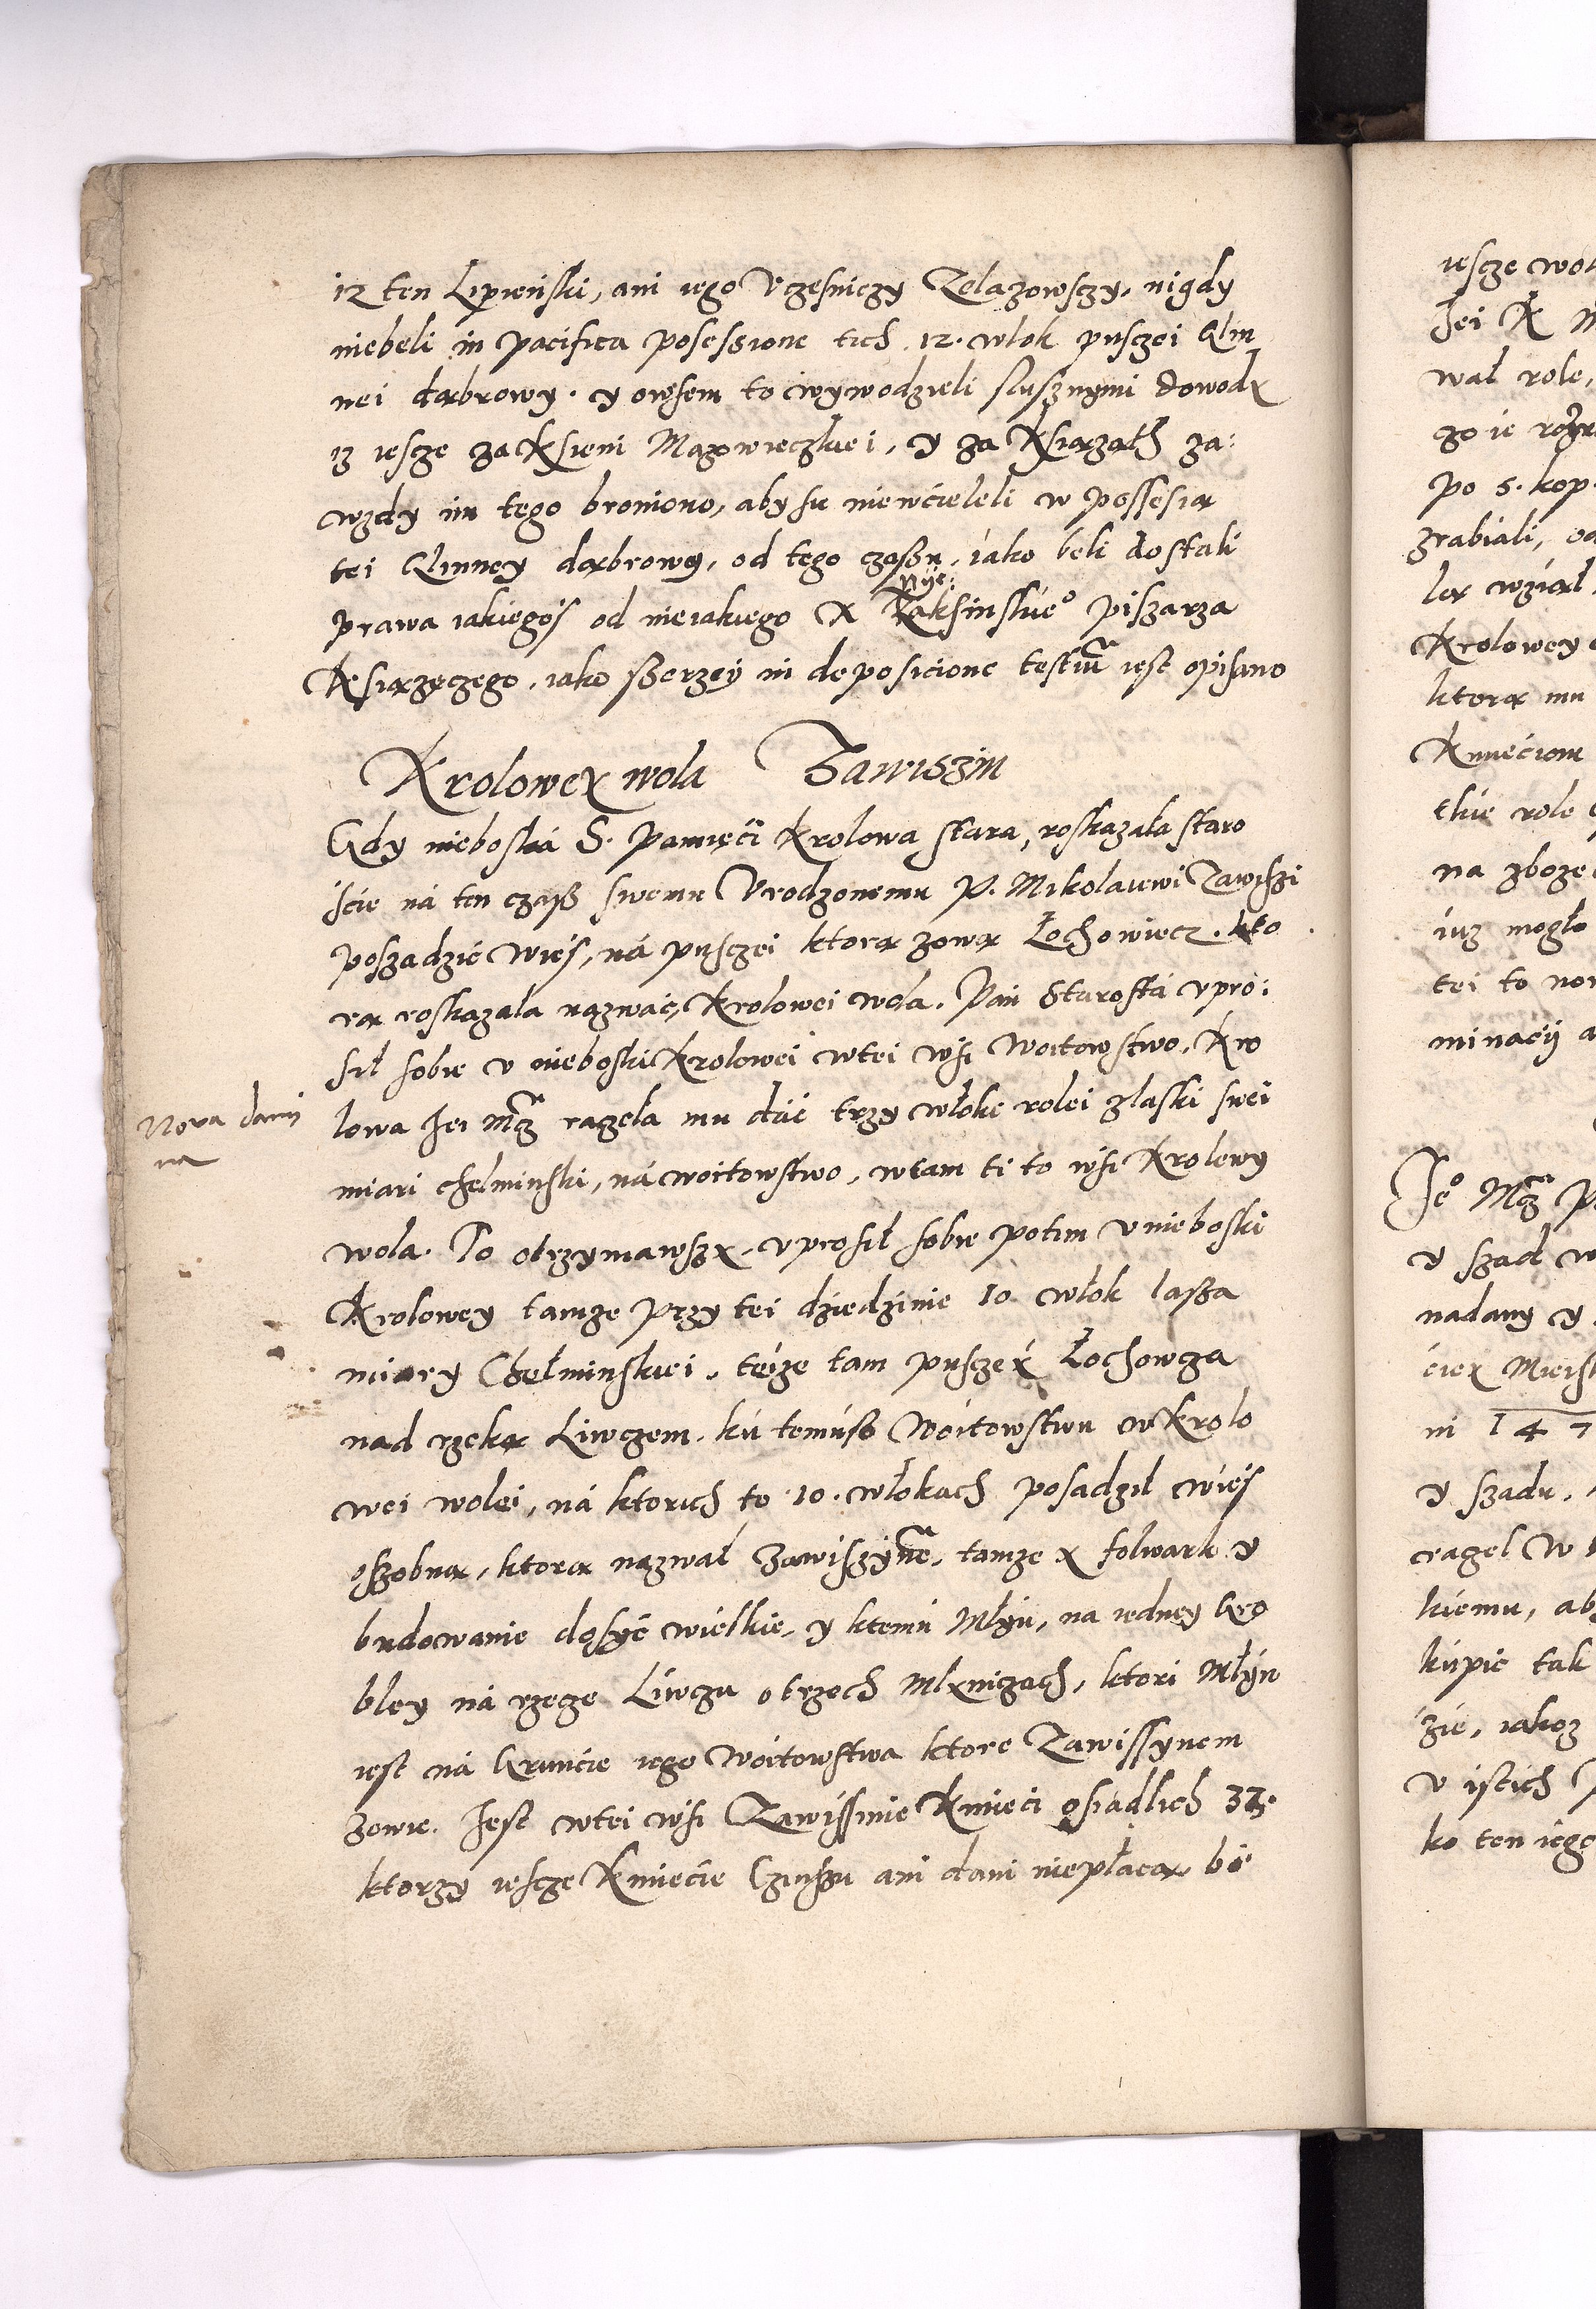 iz ten Lipienski, ani iego Vczesniczy Zelazowsczy, nigdy
niebeli in pacifica posessione tich 12. wlok pusczei Glin
nei dąbrowy. y owsem to wywodzieli slusznymi dowody
iz iescze za Ksieni Mazowieczkiei, y za Ksiązath za:
wzdy im tego broniono, aby su niewcieleli w possesią
tei Glinney dąbrowy, od tego czaszu, iako beli dostali
nye:
prawa iakiegos od nieiakiego X Zaksinskieo piszarza
Ksiązęczego, iako szerzey in deposicione testiu iest opisano
Krolowey wola Zawiszin
Gdy nieboska S. Pamięci Krolowa stara, roskazala staro
scie ná ten czasz swemu Vrodzonemu P. Mikolaiewi Zawiszi
poszadzic wies, ná pusczei ktorą zową Łochowiecz. kto
rą roskazala nazwac, Krolowei wola. Pan Starosta vpro:
sil sobie v nieboski Krolowei wtei wsi woitowstwo, Kro
Nova dani
na
lowa Jei Mcz raczela mu dác trzy wloke rolei z laski swei
miari chelminski, ná woitowstwo, wtam ti to wsi Krolewy
wola. To otrzymawszy, vprosil sobie potim v nieboski
Krolowey tamze przy tei dziedzinie 10 włok lasza
miary Chełminskiei, teize tam pusczey Łochowcza
nad rzeką Liwczem. kú temúsz Wóitowstwu w Krolo
wei wolei, ná ktorich to 10. włokach posadzil wies
oszobną, ktorą nazwał Zawiszyne, tamze y folwark y
budowanie dosyc wielkie, y ktemú Młyn, na iedney Gro
bley ná rzece Liwczu o trzech Mlyniczach, ktori Młyn
iest ná Gruncie iego woitowstwa ktore Zawissynem
zowie. Jest wtei wsi Zawissinie Kmieci osiadlich 33.
ktorzy iescze Kmiecie Czinszu ani dani niepłacą bo
iescze wol
Jei K M
wał role,
po 5. kop.
zrabiali,
Krolowey
ktorą mu
Kmieciom
tkie role
na zboze
iuz mogło
tei to
minacij a
Jeo Mcz P
y szad w
nadany y
in 147
y szadu,
raczel w
kiemu, ab
kúpic tak
zie, iakoz
v istich
ko ten iego